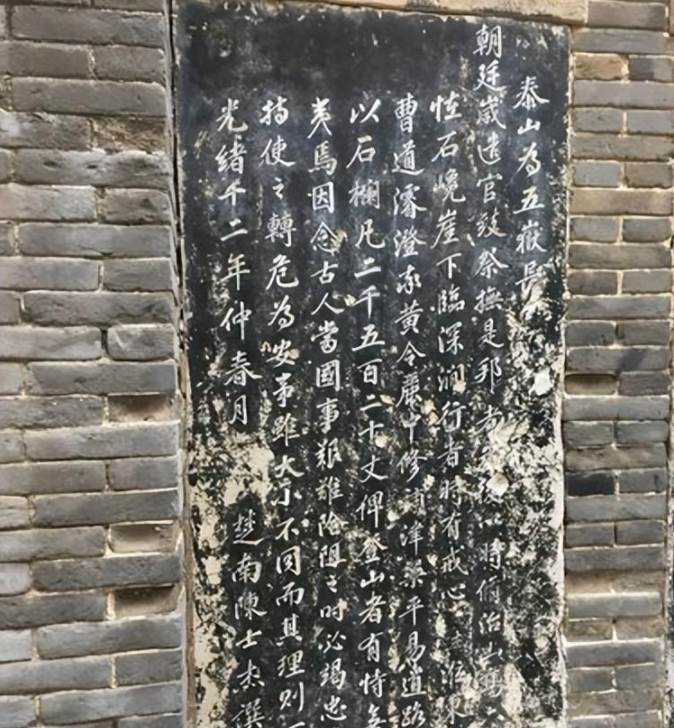 泰山為五嶽長
朝廷歲遣官致祭撫是邦者以時修治山
怪石巉崖下臨深澗行者時有戒心
曹道濬澄飭黃令麗中修道津梁平易道路
以石欄凡二千五百二十丈俾登山者有恃無
夷焉因念古人當國事艱難險阻之時必竭忠
持使之轉危為安事雖大小不同而其理則一
光緒十二年仲春月 楚南陳士杰撰